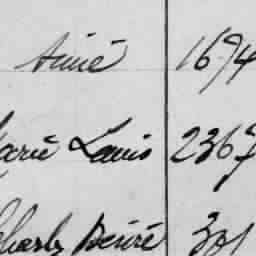 Aimé 1674
Marie Louis 2367
Charles Désiré 331